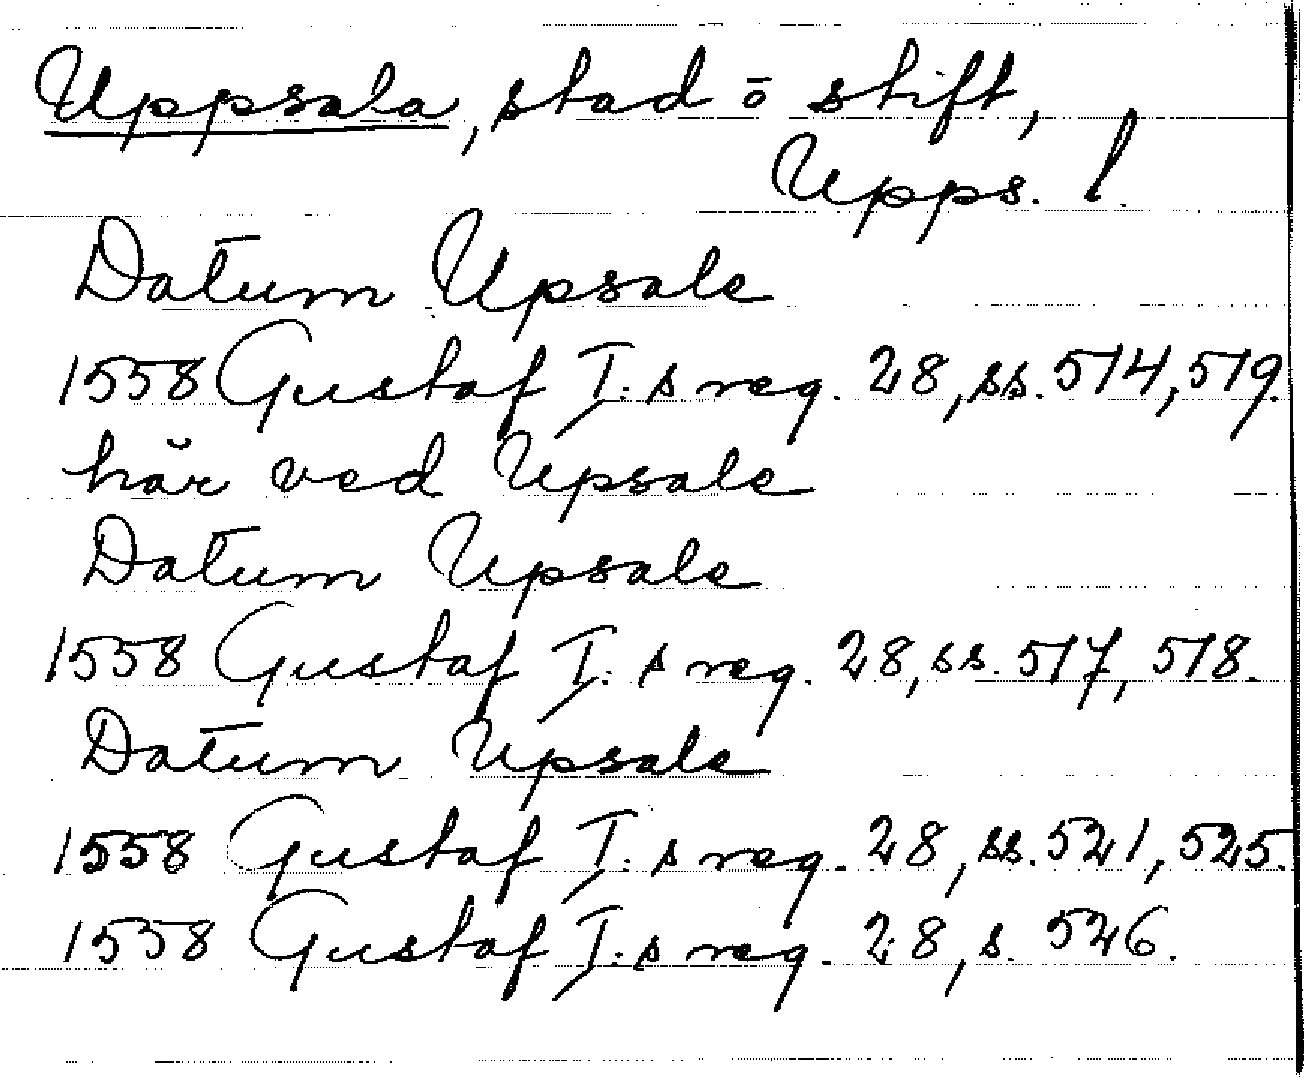 Uppsala, stad ō stift,
Upps. l.
Datum Upsale
1558 Gustaf I:s reg. 28, ss. 514, 519.
här ved Upsale
Datum Upsale
1558 Gustaf I:s reg. 28, ss. 517, 518.
Datum Upsale
1558 Gustaf I:s reg. 28, ss. 521, 525.
1558 Gustaf I:s reg. 28, s. 526.